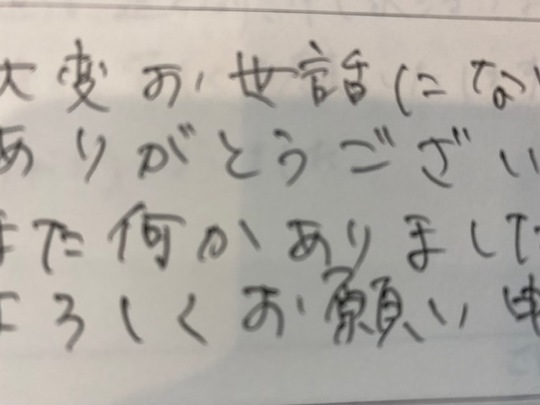 大変お世話にな
ありがとうござい
また何かありました
よろしくお願い申